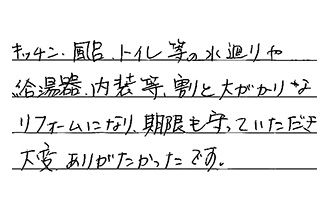 キッチン、風呂、トイレ等の水廻りや
給湯器、内装等、割と大がかりな
リフォームになり、期限も守っていただき
大変、ありがたかったです。